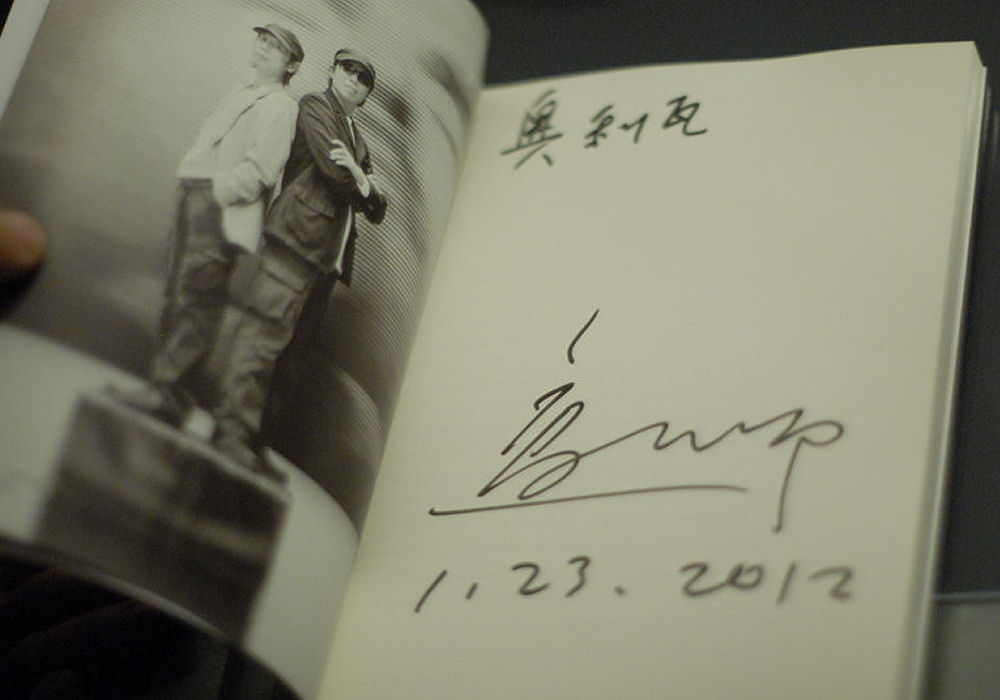 奥利瓦
1.23.2012